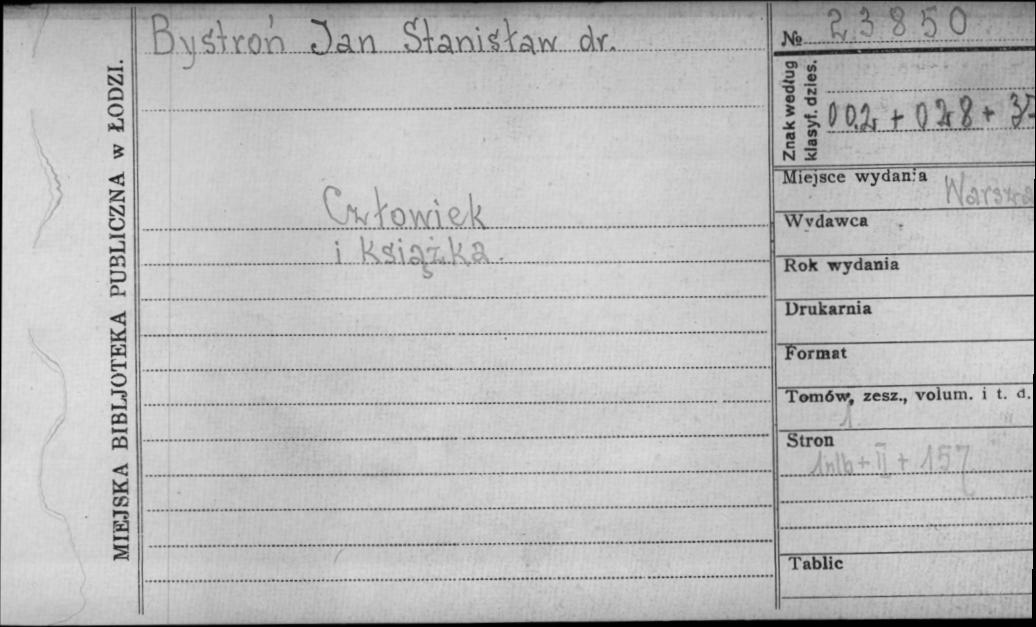 MIEJSKA BIBLJOTEKA PUBLICZNA w ŁODZI.
Bystroń Jan Stanisław dr.
Człowiek
i książka.
№ 23850
Znak według
klasyf. dzies.
002 + 028 + 37
Miejsce wydania Warsza
Wydawca
Rok wydania
Drukarnia
Format
Tomów, zesz., volum. i t. d.
1
Stron
1nlb + II + 157
Tablic